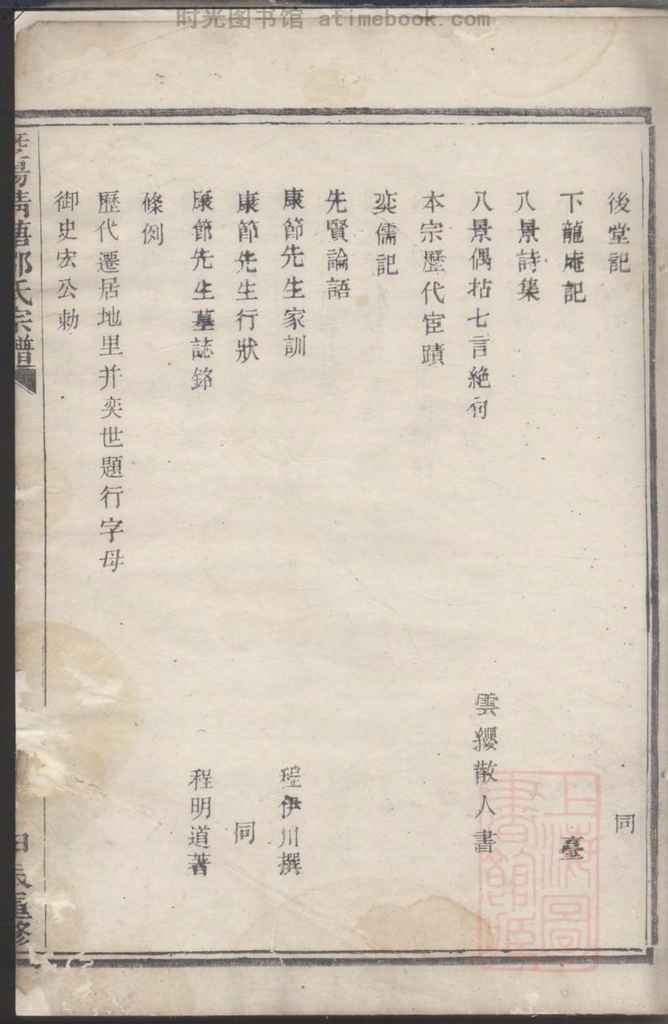 时光图书馆 atimebook.com
後堂記 同
下龍庵記 臺
八景詩集
八景偶拈七言絶句 雲纓散人書
本宗歷代宦蹟
奕儒記
先賢論語
康節先生家訓 程伊川撰
康節先生行狀 同
康節先生墓誌銘 程明道著
條例
歷代遷居地里并奕世題行字母
御史宏公勅
陽清塘邵氏宗譜
重修
上海圖書館藏